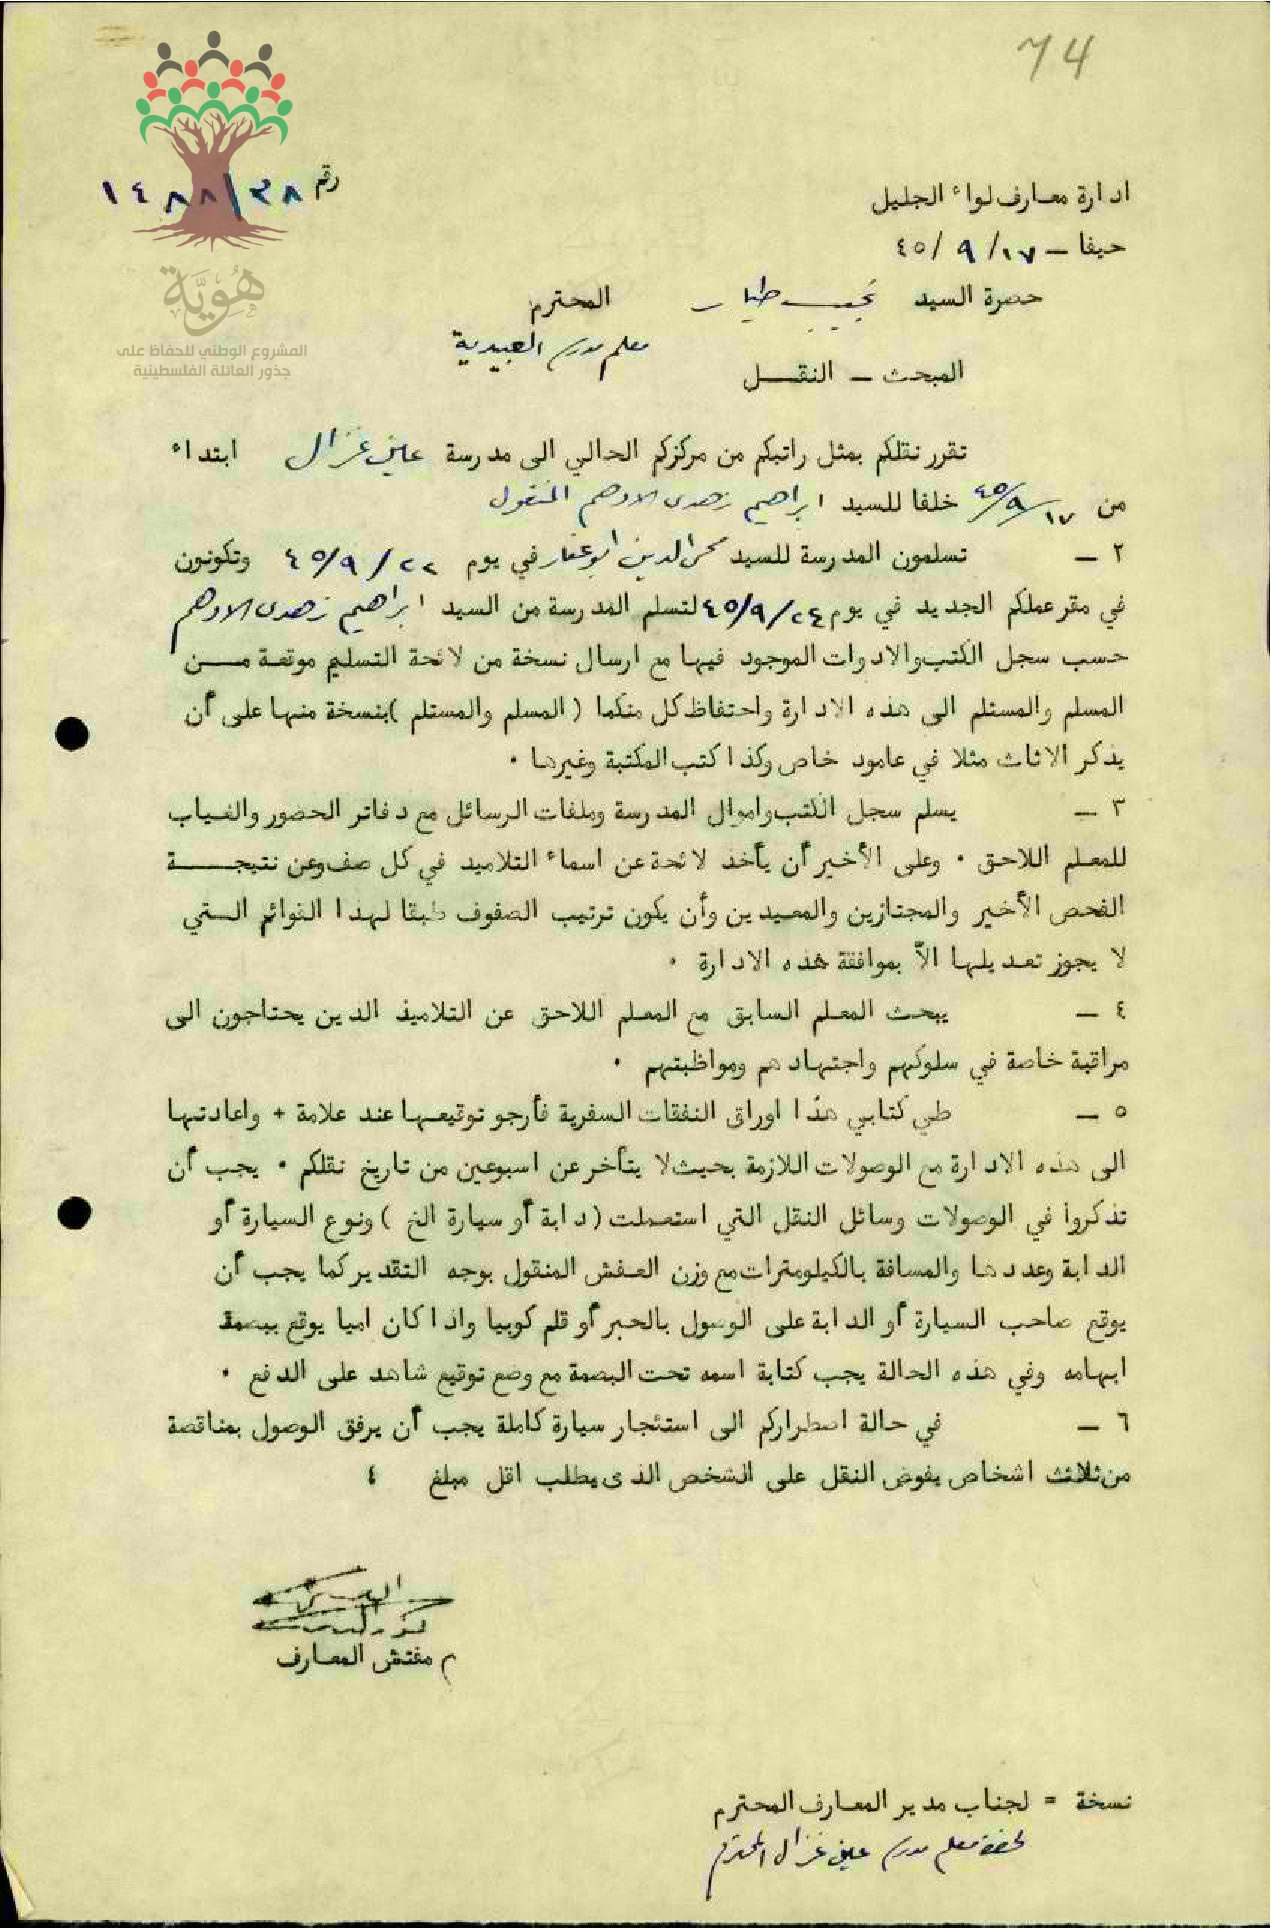 74
رقم ١٤٨٨/٣٨
ادارة معارف لواء الجليل
حيفا ــ ١٧/ ٩ /٤٥
هُوِيَّة
المشروع الوطني للحفاظ على
جذور العائلة الفلسطينية
حضرة السيد نجيب طيار المحترم
معلم مدرسة العبيدية
المبحث ــ النقــل
تقرر نقلكم بمثل راتبكم من مركزكم الحالي الى مدرسة عين غزال ابتداء
من ١٧/٩/٤٥ خلفا للسيد ابراهيم زهدى الادهم المنقول
٢ ــ تسلمون المدرسة للسيد الدين ابو غفار في يوم ٢٢/٩/٤٥ وتكونون
في مقر عملكم الجديد في يوم ٢٤/٩/٤٥ لتسلم المدرسة من السيد ابراهيم زهدى الادهم
حسب سجل الكتب والادوات الموجود فيها مع ارسال نسخة من لائحة التسليم موقعة مــن
المسلم والمستلم الى هذه الادارة واحتفاظ كل منكما ( المسلم والمستلم ) بنسخة منها على أن
يذكر الاثاث مثلا في عامود خاص وكذا كتب المكتبة وغيرها ٠
٣ ــ يسلم سجل الكتب واموال المدرسة وملفات الرسائل مع دفاتر الحضور والغياب
للمعلم اللاحق ٠ وعلى الأخير أن يأخذ لائحة عن اسماء التلاميد في كل صف وعن نتيجــة
الفحص الأخير والمجتازين والمعيدين وأن يكون ترتيب الصفوف طبقا لهذا القوائم الــتي
لا يجوز تعديلها الاّ بموافقة هذه الادارة ٠
٤ ــ يبحث المعلم السابق مع المعلم اللاحق عن التلاميذ الذين يحتاجون الى
مراقبة خاصة في سلوكهم واجتهادهم ومواظبتهم ٠
٥ ــ طي كتابي هذا اوراق النفقات السفرية فأرجو توقيعها عند علامة + واعادتها
الى هذه الادارة مع الوصولات اللازمة بحيث لا يتأخر عن اسبوعين من تاريخ نقلكم ٠ يجب أن
تذكروا في الوصولات وسائل النقل التي استعملت ( دابة أو سيارة الخ ) ونوع السيارة أو
الدابة وعددها والمسافة بالكيلومترات مع وزن العفش المنقول بوجه التقدير كما يجب أن
يوقع صاحب السيارة أو الدابة على الوصول بالحبر أو قلم كوبيا واذا كان اميا يوقع ببصمة
ابهامه وفي هذه الحالة يجب كتابة اسمه تحت البصمة مع وضع توقيع شاهد على الدفع ٠
٦ ــ في حالة اضطراركم الى استئجار سيارة كاملة يجب أن يرفق الوصول بمناقصة
من ثلاثة اشخاص يفوض النقل على الشخص الذى يطلب اقل مبلغ ٤
م مفتش المعارف
نسخة = لجناب مدير المعارف المحترم
لحضرة معلم مدرسة عين غزال المحترم